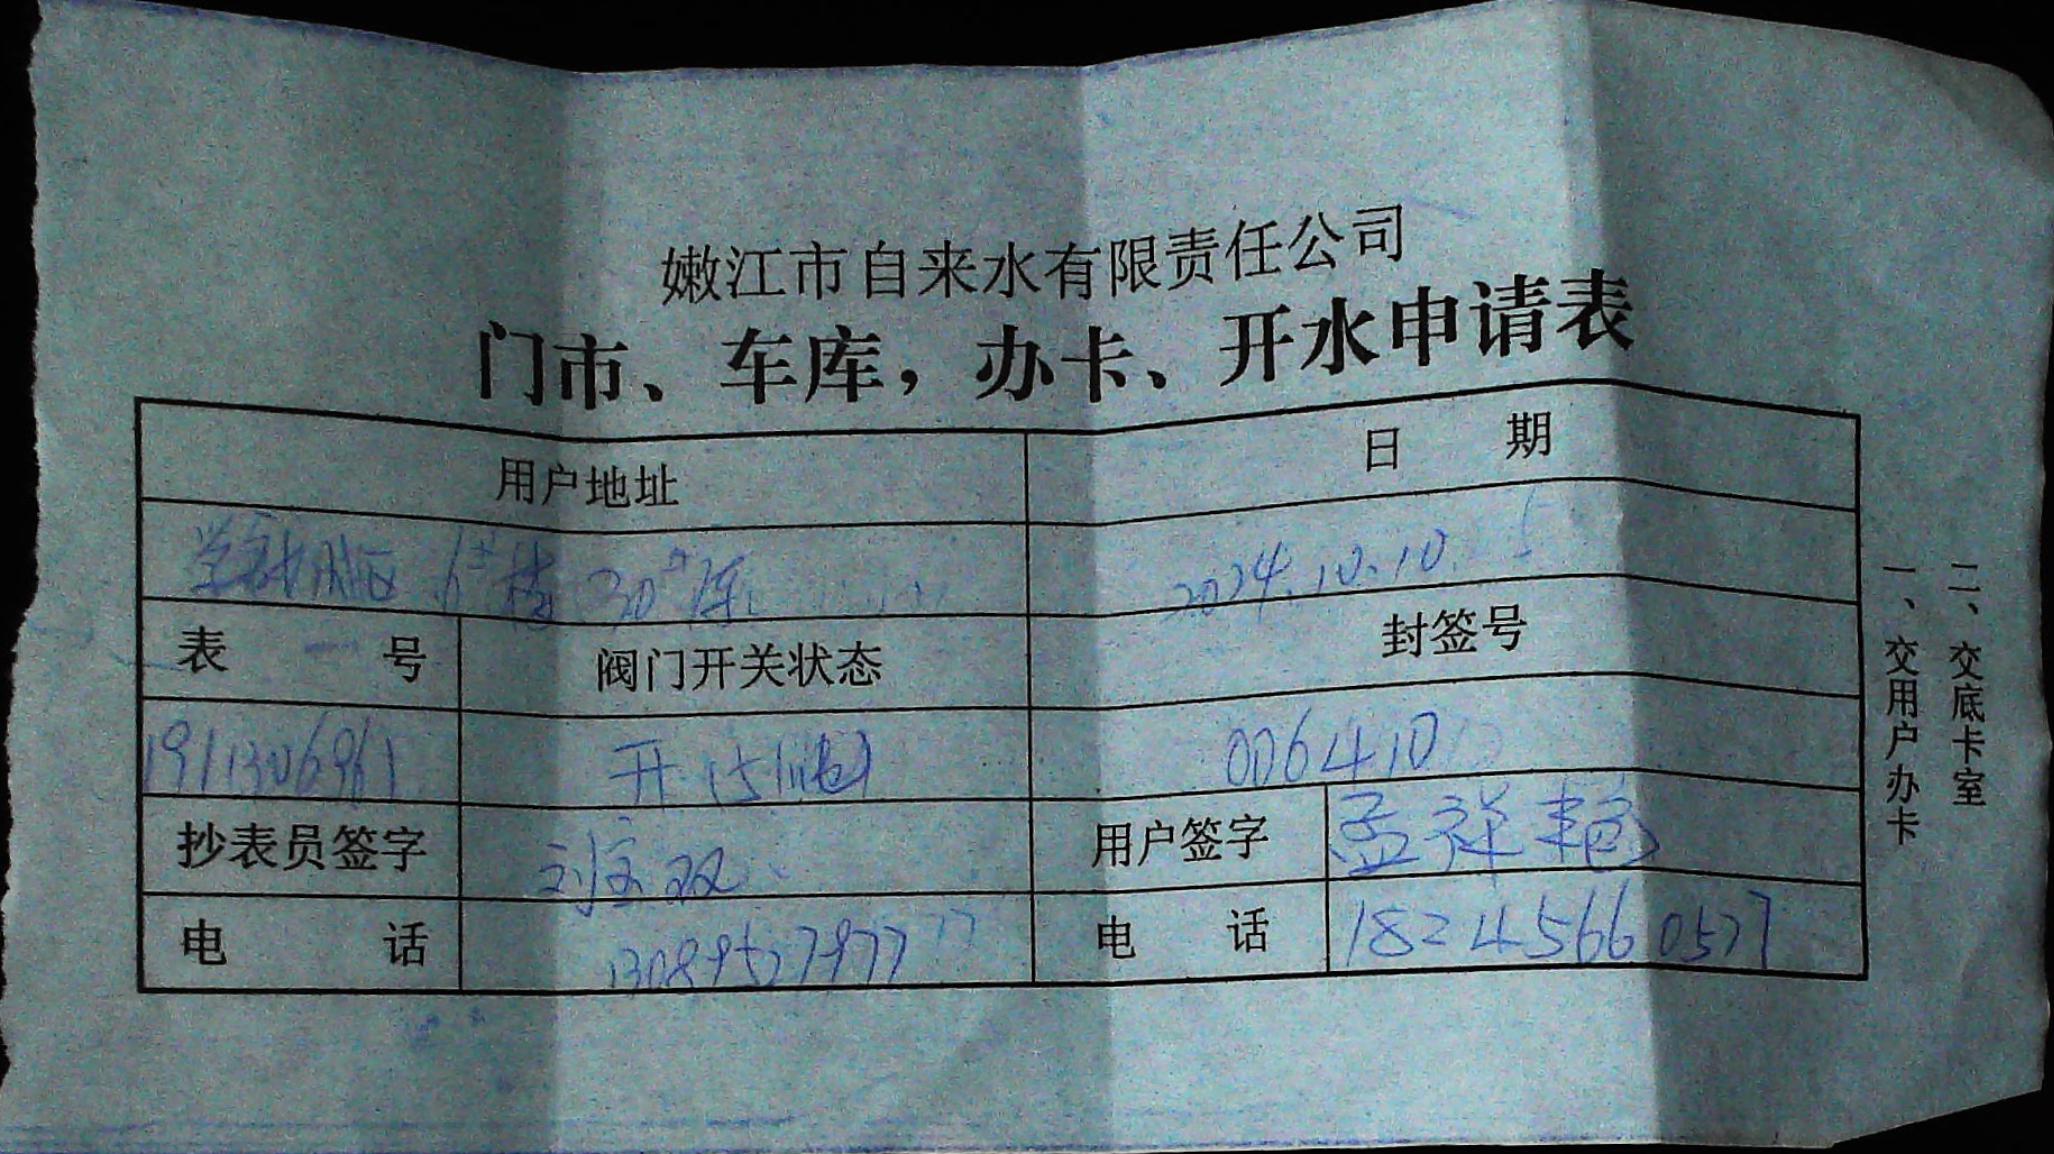 嫩江市自来水有限责任公司
门市、车库，办卡、开水申请表
用户地址 日 期
6#楼 30#库 2024.10.10
表 号 阀门开关状态 封签号
1911306961 开 006410
抄表员签字 刘宝双 用户签字 孟祥艳
电 话 13089527977 电 话 18245660577
一、交用户办卡
二、交底卡室